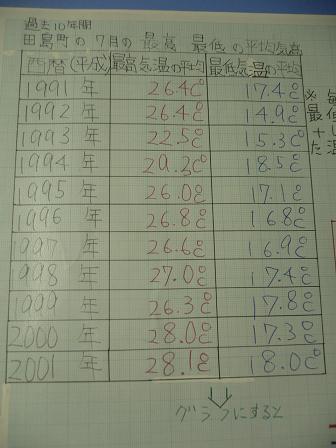 過去10年間
田島町の7月の最高 最低の平均気温
西暦(平成) 最高気温の平均 最低気温の平均
1991年 26.4℃ 17.4℃
1992年 26.4℃ 14.9℃
1993年 22.5℃ 15.3℃
1994年 29.3℃ 18.5℃
1995年 26.0℃ 17.1℃
1996年 26.8℃ 16.8℃
1997年 26.6℃ 16.9℃
1998年 27.0℃ 17.4℃
1999年 26.3℃ 17.8℃
2000年 28.0℃ 17.3℃
2001年 28.1℃ 18.0℃
↓
グラフにすると
※
最低
た温